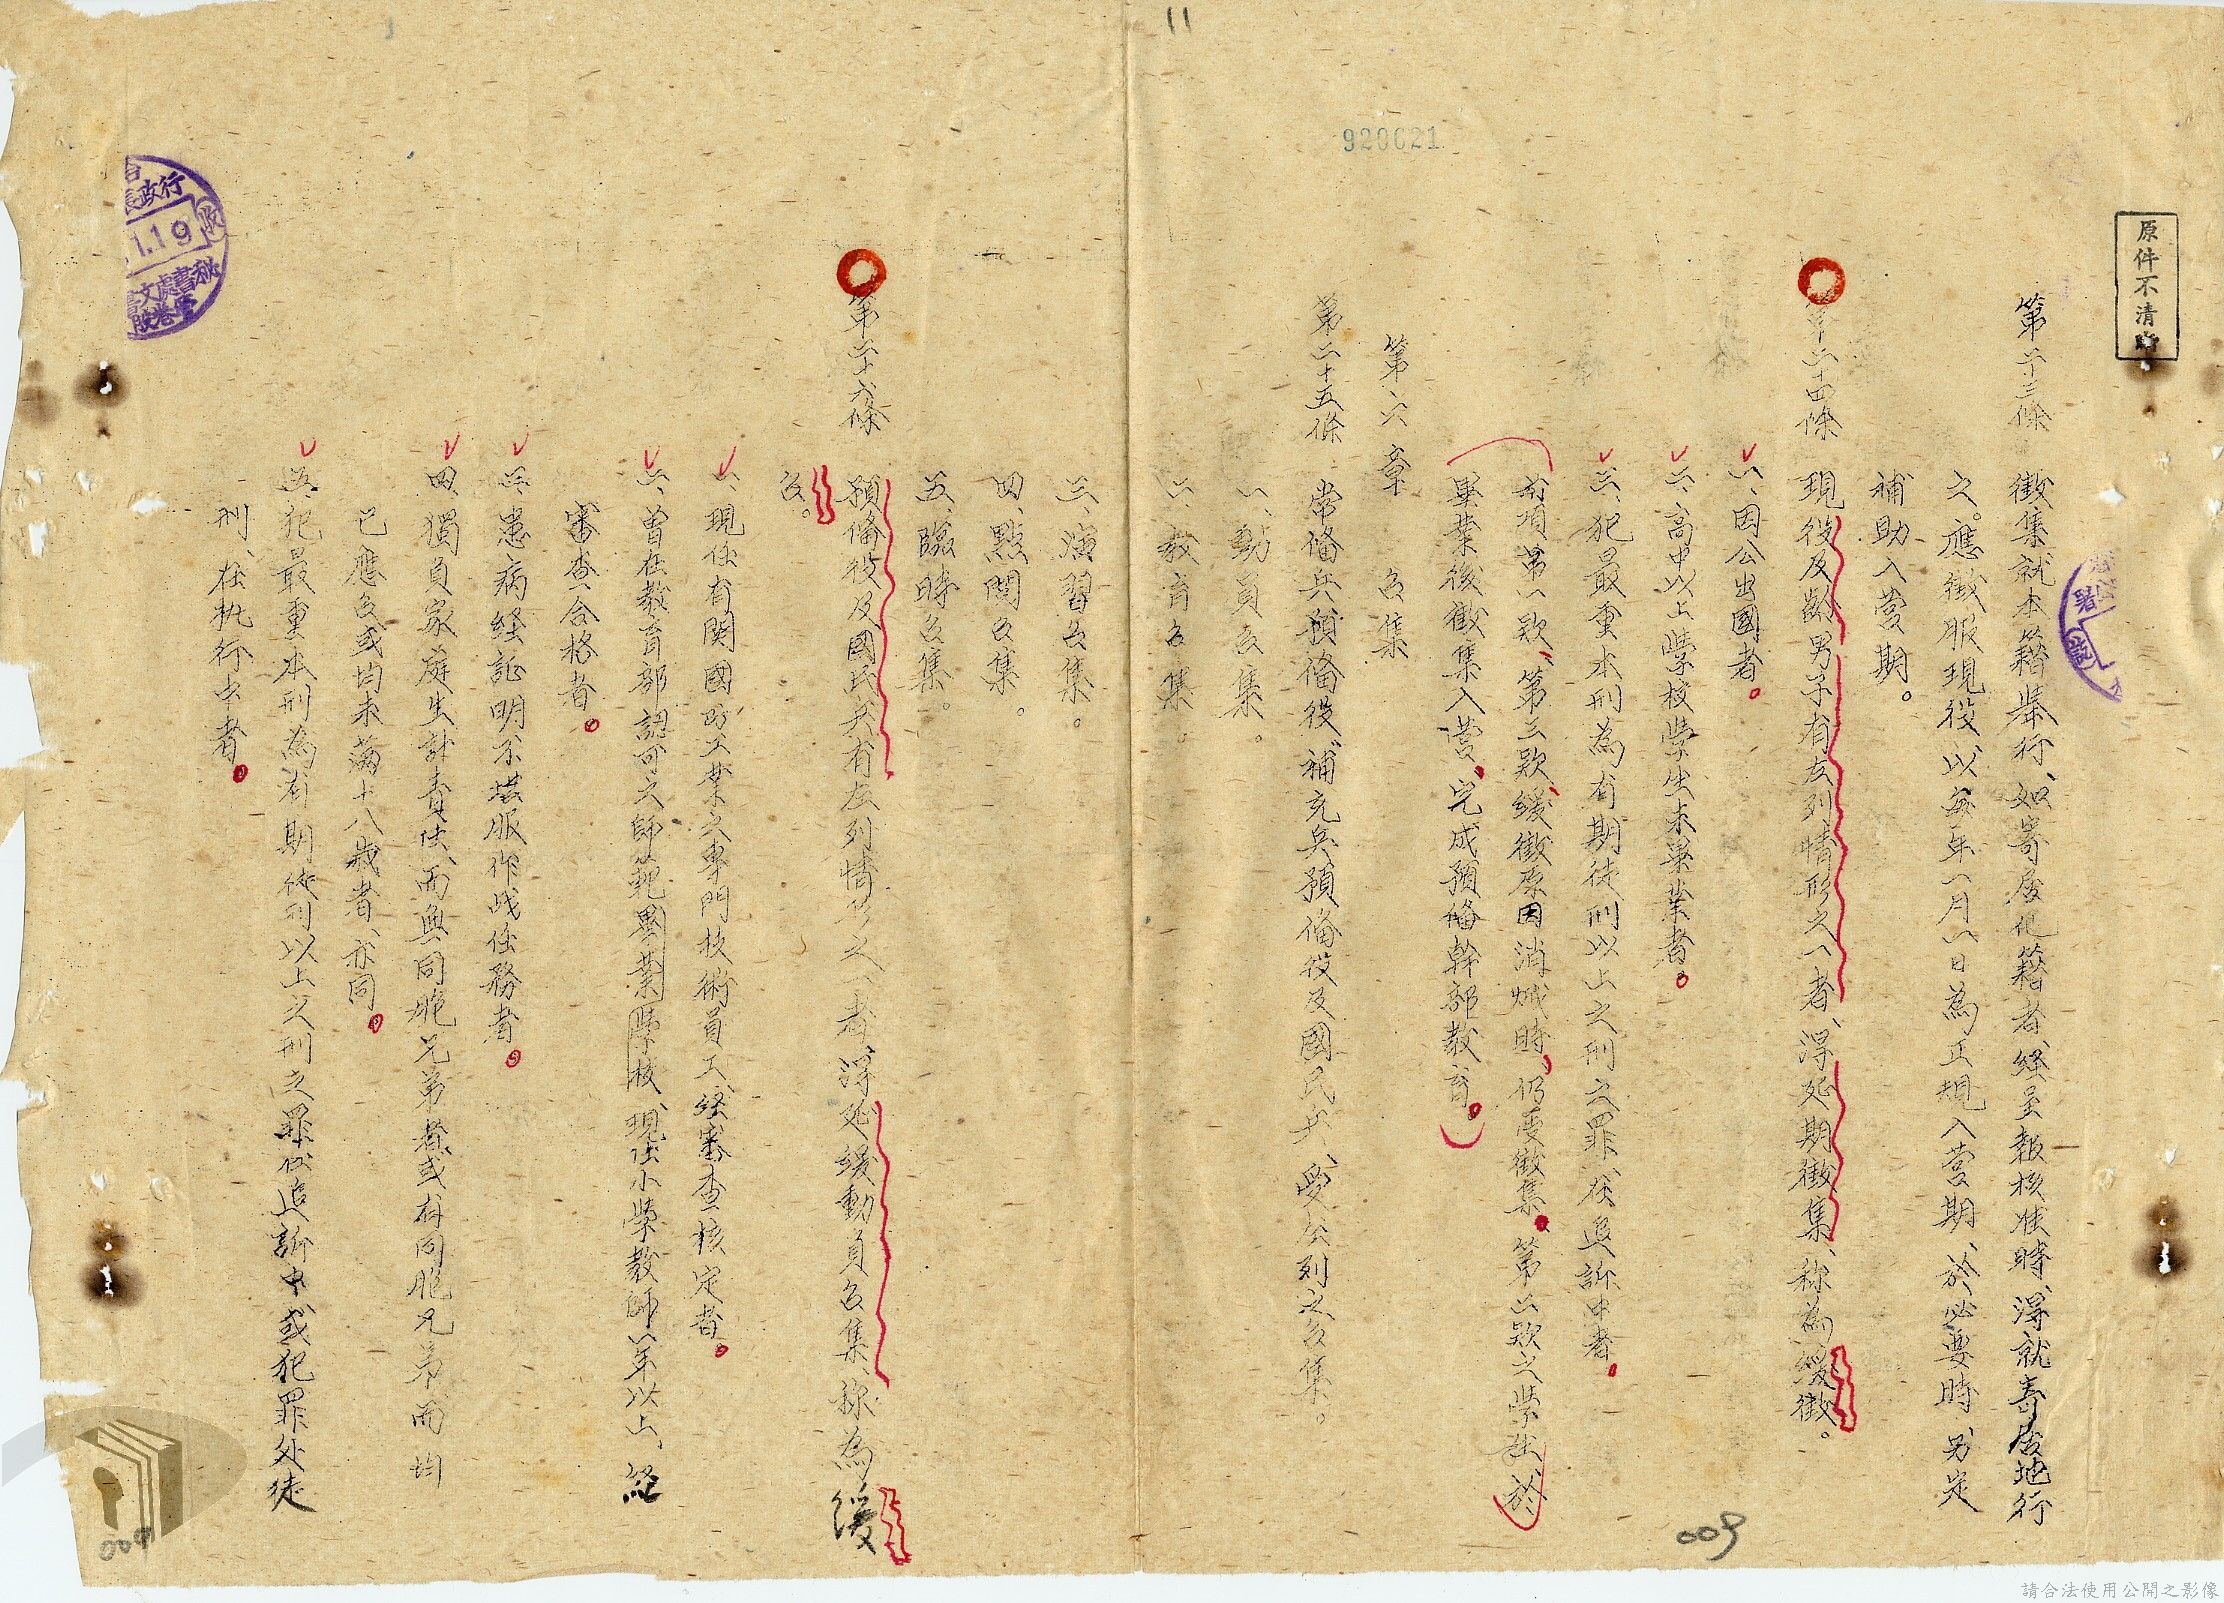 11
920621
原件不清晰
第二十三條 徵集就本籍舉行、如寄居他籍者、經呈報核准時、得就寄居地行
之。應徵服現役以每年一月一日為正規入營期、於必要時、另定
補助入營期。
第二十四條 現役及齡男子有左列情形之一者、得延期徵集、称為緩徵。
一、因公出國者。
二、高中以上學校學生未畢業者。
三、犯最重本刑為有期徒刑以上之刑之罪、在追訴中者。
前項第一款、第三款、緩徵原因消滅時、仍受徵集。第二款之學生、於
畢業後徵集入營、完成預備幹部教育。
第六章 召集
第二十五條 常備兵預備役、補充兵預備役及國民兵、受左列之召集。
一、動員召集。
二、教育召集。
三、演習召集。
四、點閱召集。
五、臨時召集。
第二十六條 預備役及國民兵有左列情形之一者、得延緩動員召集、称為緩
召。
一、現任有関國防工業之專門技術員工、經審查核定者。
二、曾在教育部認可之師範畢業學校、現任小學教師一年以上、經
審查合格者。
三、患病経証明不堪服作战任務者。
四、獨負家庭生計責任、而無同胞兄弟者、或有同胞兄弟、而均
已應召或均未满十八歲者、亦同。
五、犯最重本刑為有期徒刑以上之刑之罪在追訴中、或犯罪处徒
刑、在执行中者。
行政長
收
1.19
秘書處文書
股卷管
009
009
請合法使用公開之影像